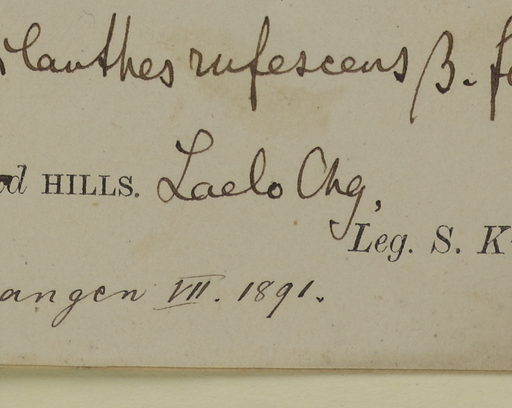 ilanthes rufescens β. fo
od HILLS. Laelo Chg,
Leg. S. K
angen VII. 1891.